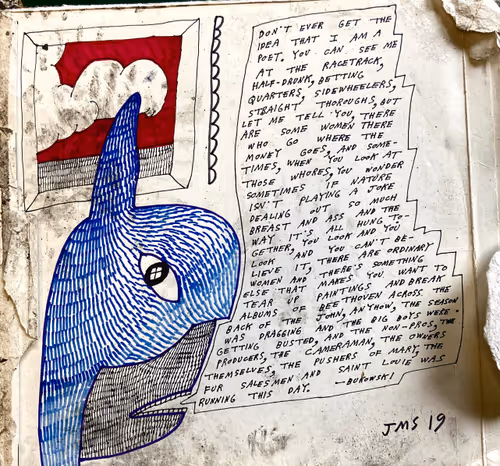 DON'T EVER GET THE
IDEA THAT I AM A
POET. YOU CAN SEE ME
AT THE RACETRACK,
HALF-DRUNK, BETTING
QUARTERS, SIDEWHEELERS,
STRAIGHT THOROUGHS, BUT
LET ME TELL YOU, THERE
ARE SOME WOMEN THERE
WHO GO WHERE THE
MONEY GOES, AND SOME-
TIMES, WHEN YOU LOOK AT
THOSE WHORES, YOU WONDER
SOMETIMES IF NATURE
ISN'T PLAYING A JOKE
DEALING OUT SO MUCH
BREAST AND ASS AND THE
WAY IT'S ALL HUNG TO-
GETHER, YOU LOOK AND YOU
LOOK AND YOU CAN'T BE-
LIEVE IT, THERE ARE ORDINARY
WOMEN AND THERE'S SOMETHING
ELSE THAT MAKES YOU WANT TO
TEAR UP PAINTINGS AND BREAK
ALBUMS OF BEETHOVEN ACROSS THE
BACK OF THE JOHN, ANYHOW, THE SEASON
WAS DRAGGING AND THE BIG BOYS WERE
GETTING BUSTED, AND THE NON-PROS, THE
PRODUCERS, THE CAMERAMAN, THE
PUSHERS OF MARY, THE
FUR SALESMEN, THE OWNERS
THEMSELVES, AND SAINT LOUIE WAS
RUNNING THIS DAY. -BUKOWSKI
JMS 19